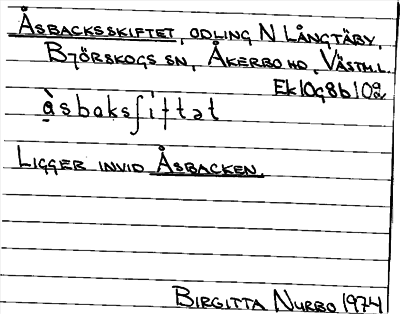 Åsbacksskiftet, odling N Långtäby,
Björskogs sn, Åkerbo hd, Västm.l.
Ek 10g8b102
å̀sbaksʃiftət
Ligger invid Åsbacken.
Birgitta Nurbo 1974